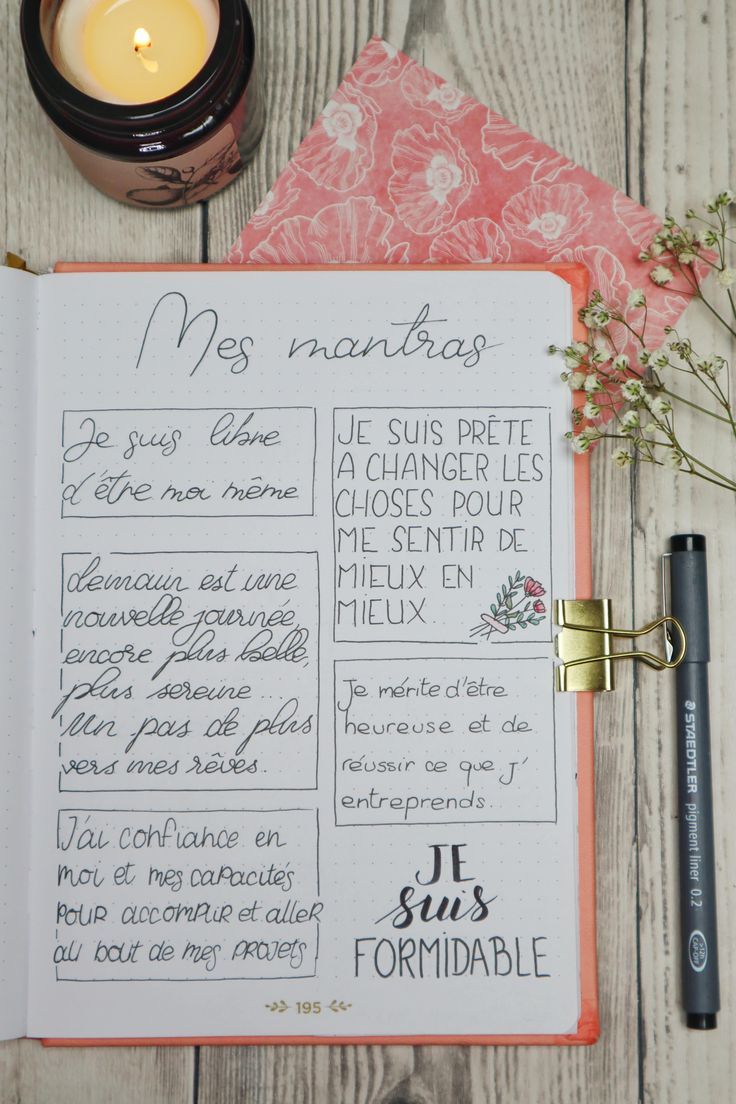 Mes mantras
Je suis libre
d'être moi même
demain est une
nouvelle journée,
encore plus belle,
plus sereine...
Un pas de plus
vers mes rêves.
J'ai confiance en
moi et mes capacités
pour accomplir et aller
au bout de mes projets
JE SUIS PRÊTE
A CHANGER LES
CHOSES POUR
ME SENTIR DE
MIEUX EN
MIEUX...
Je mérite d'être
heureuse et de
réussir ce que j'
entreprends...
JE
suis
FORMIDABLE
195
STAEDTLER
pigment liner 0.2
CAP-OFF